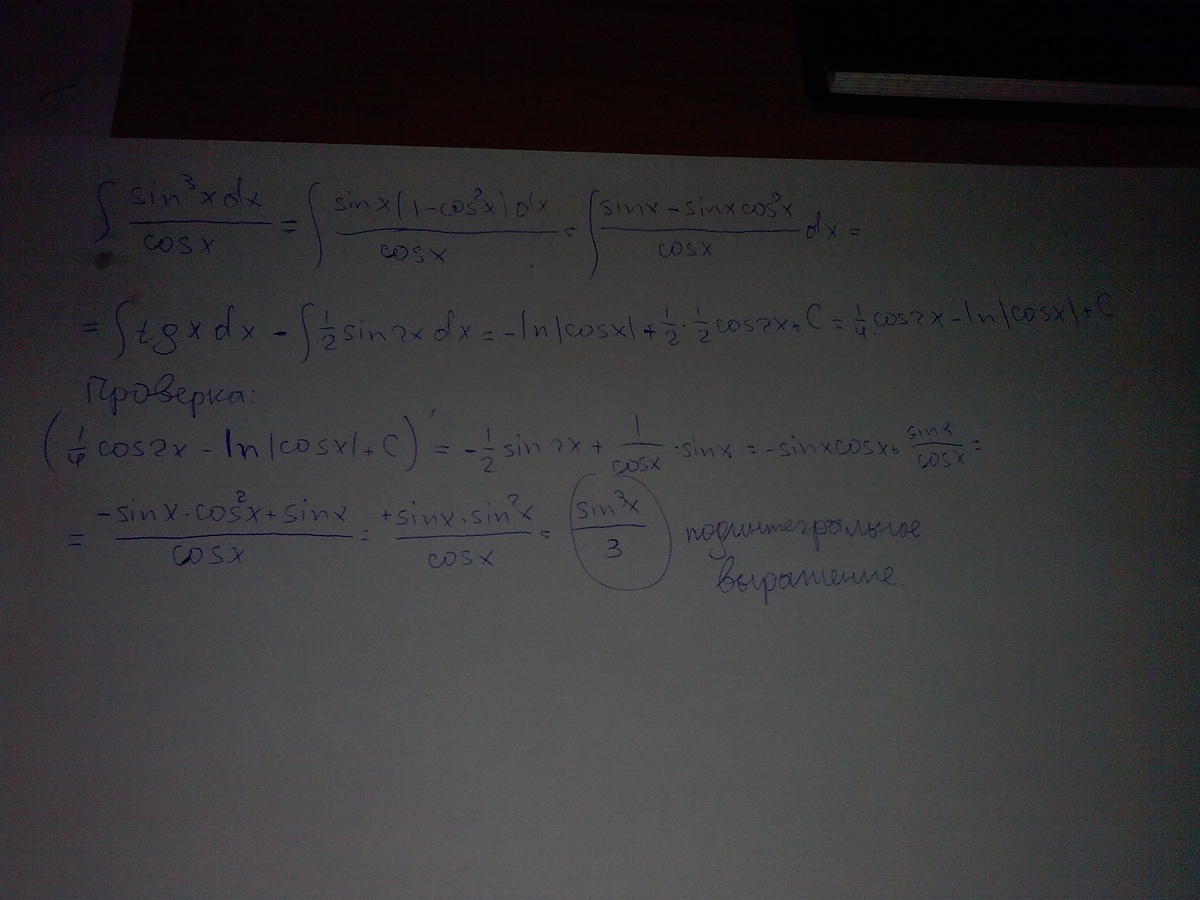 ∫ sin³x dx / cosx = ∫ sinx(1-cos²x)dx / cosx = ∫ sinx - sinxcos²x / cosx dx =
= ∫ tgx dx - ∫ 1/2 sin2x dx = -ln|cosx| + 1/2 · 1/2 cos2x + C = 1/4 cos2x - ln|cosx| + C
Проверка:
(1/4 cos2x - ln|cosx| + C)' = -1/2 sin2x + 1/cosx · sinx = -sinxcosx + sinx/cosx =
= -sinx·cos²x + sinx / cosx = +sinx·sin²x / cosx = sin³x / 3 подинтегральное
выражение.